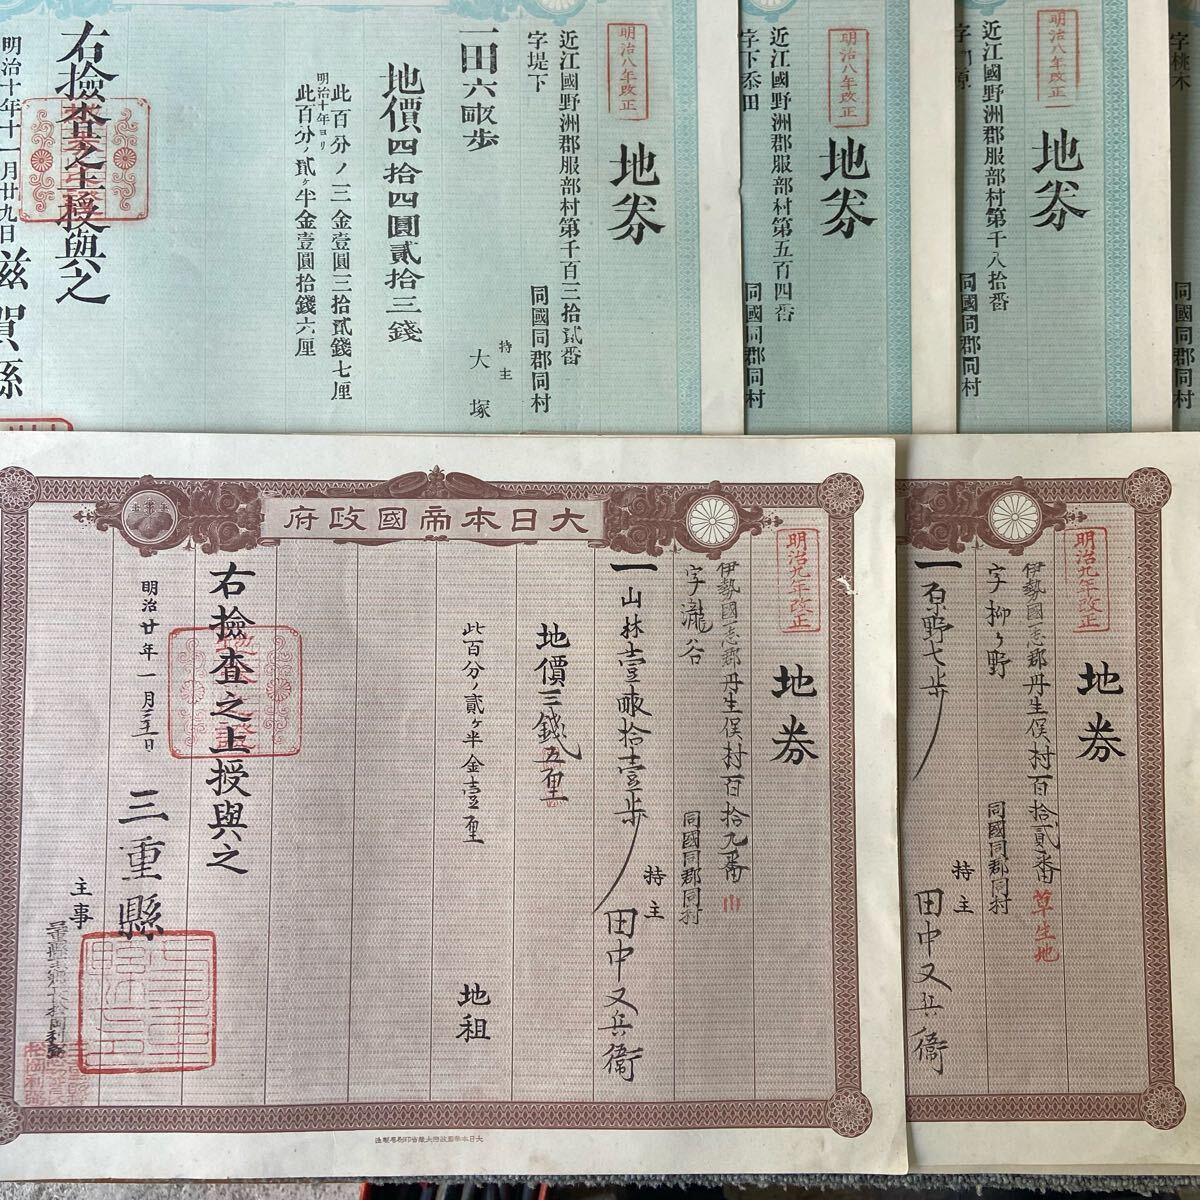 明治八年改正
地券
近江國野洲郡服部村第千百三拾貳番
字堤下
同國同郡同村
持主
大塚
一田六畝歩
地價四拾四圓貳拾三錢
此百分ノ三金壹圓三拾貳錢七厘
明治十年ヨリ
此百分ノ貳ヶ半金壹圓拾錢六厘
右撿査之上授與之
明治十年十一月廿九日
滋賀縣
明治八年改正
地券
近江國野洲郡服部村第五百四番
同國同郡同村
明治八年改正
地券
近江國野洲郡服部村第千八拾番
同國同郡同村
字桃木
同國同郡同村
大日本帝國政府
明治九年改正
地券
伊勢國壱志郡丹生俣村百拾九番
山
字瀧谷
同國同郡同村
一山林壹畝拾壹歩
持主
田中又兵衞
地價三錢五厘
此百分ノ貳ヶ半金壹厘
地租
右撿査之上授與之
明治廿年一月三十一日
三重縣
主事
大日本帝國政府大蔵省印刷局製造
明治九年改正
地券
伊勢國壱志郡丹生俣村百拾貳番
草生地
字柳ヶ野
同國同郡同村
一原野七歩
持主
田中又兵衞